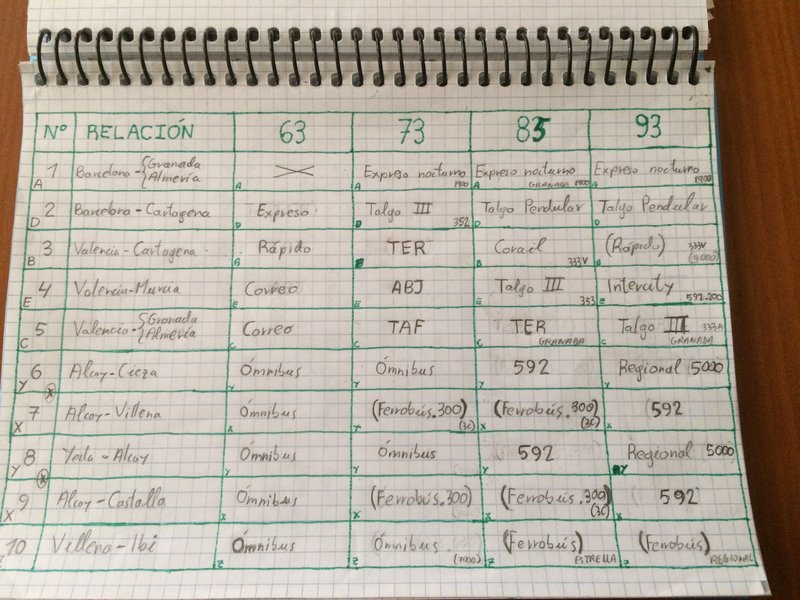 Nº RELACIÓN 63 73 85 93
1 A Barcelona-{Granada Almería A Expreso nocturno 1900 A Expreso nocturno GRANADA 1900 A Expreso nocturno 1900 A
2 D Barcelona-Cartagena Expreso D Talgo III 352 D Talgo Pendular D Talgo Pendular D
3 B Valencia-Cartagena Rápido B TER B Corail 333V B (Rápido) 333V B
4 E Valencia-Murcia Correo E ABJ E Talgo III 353 E Intercity 592.200 E
5 C Valencia-{Granada Almería Correo C TAF C TER GRANADA C Talgo III 333A GRANADA C
6 Y Alcoy-Cieza Ómnibus Y Ómnibus Y 592 Y Regional 5000 Y
7 X Alcoy-Villena Ómnibus X (Ferrobús.300) (3C) X (Ferrobús.300) (3C) X 592 X
8 Y Yecla-Alcoy Ómnibus Y Ómnibus Y 592 Y Regional 5000 Y
9 X Alcoy-Castalla Ómnibus X (Ferrobús.300) (3C) X (Ferrobús.300) (3C) X 592 X
10 Z Villena-Ibi Ómnibus Z Ómnibus (7000) Z (Ferrobús) ESTRELLA Z (Ferrobús) REGIONAL Z